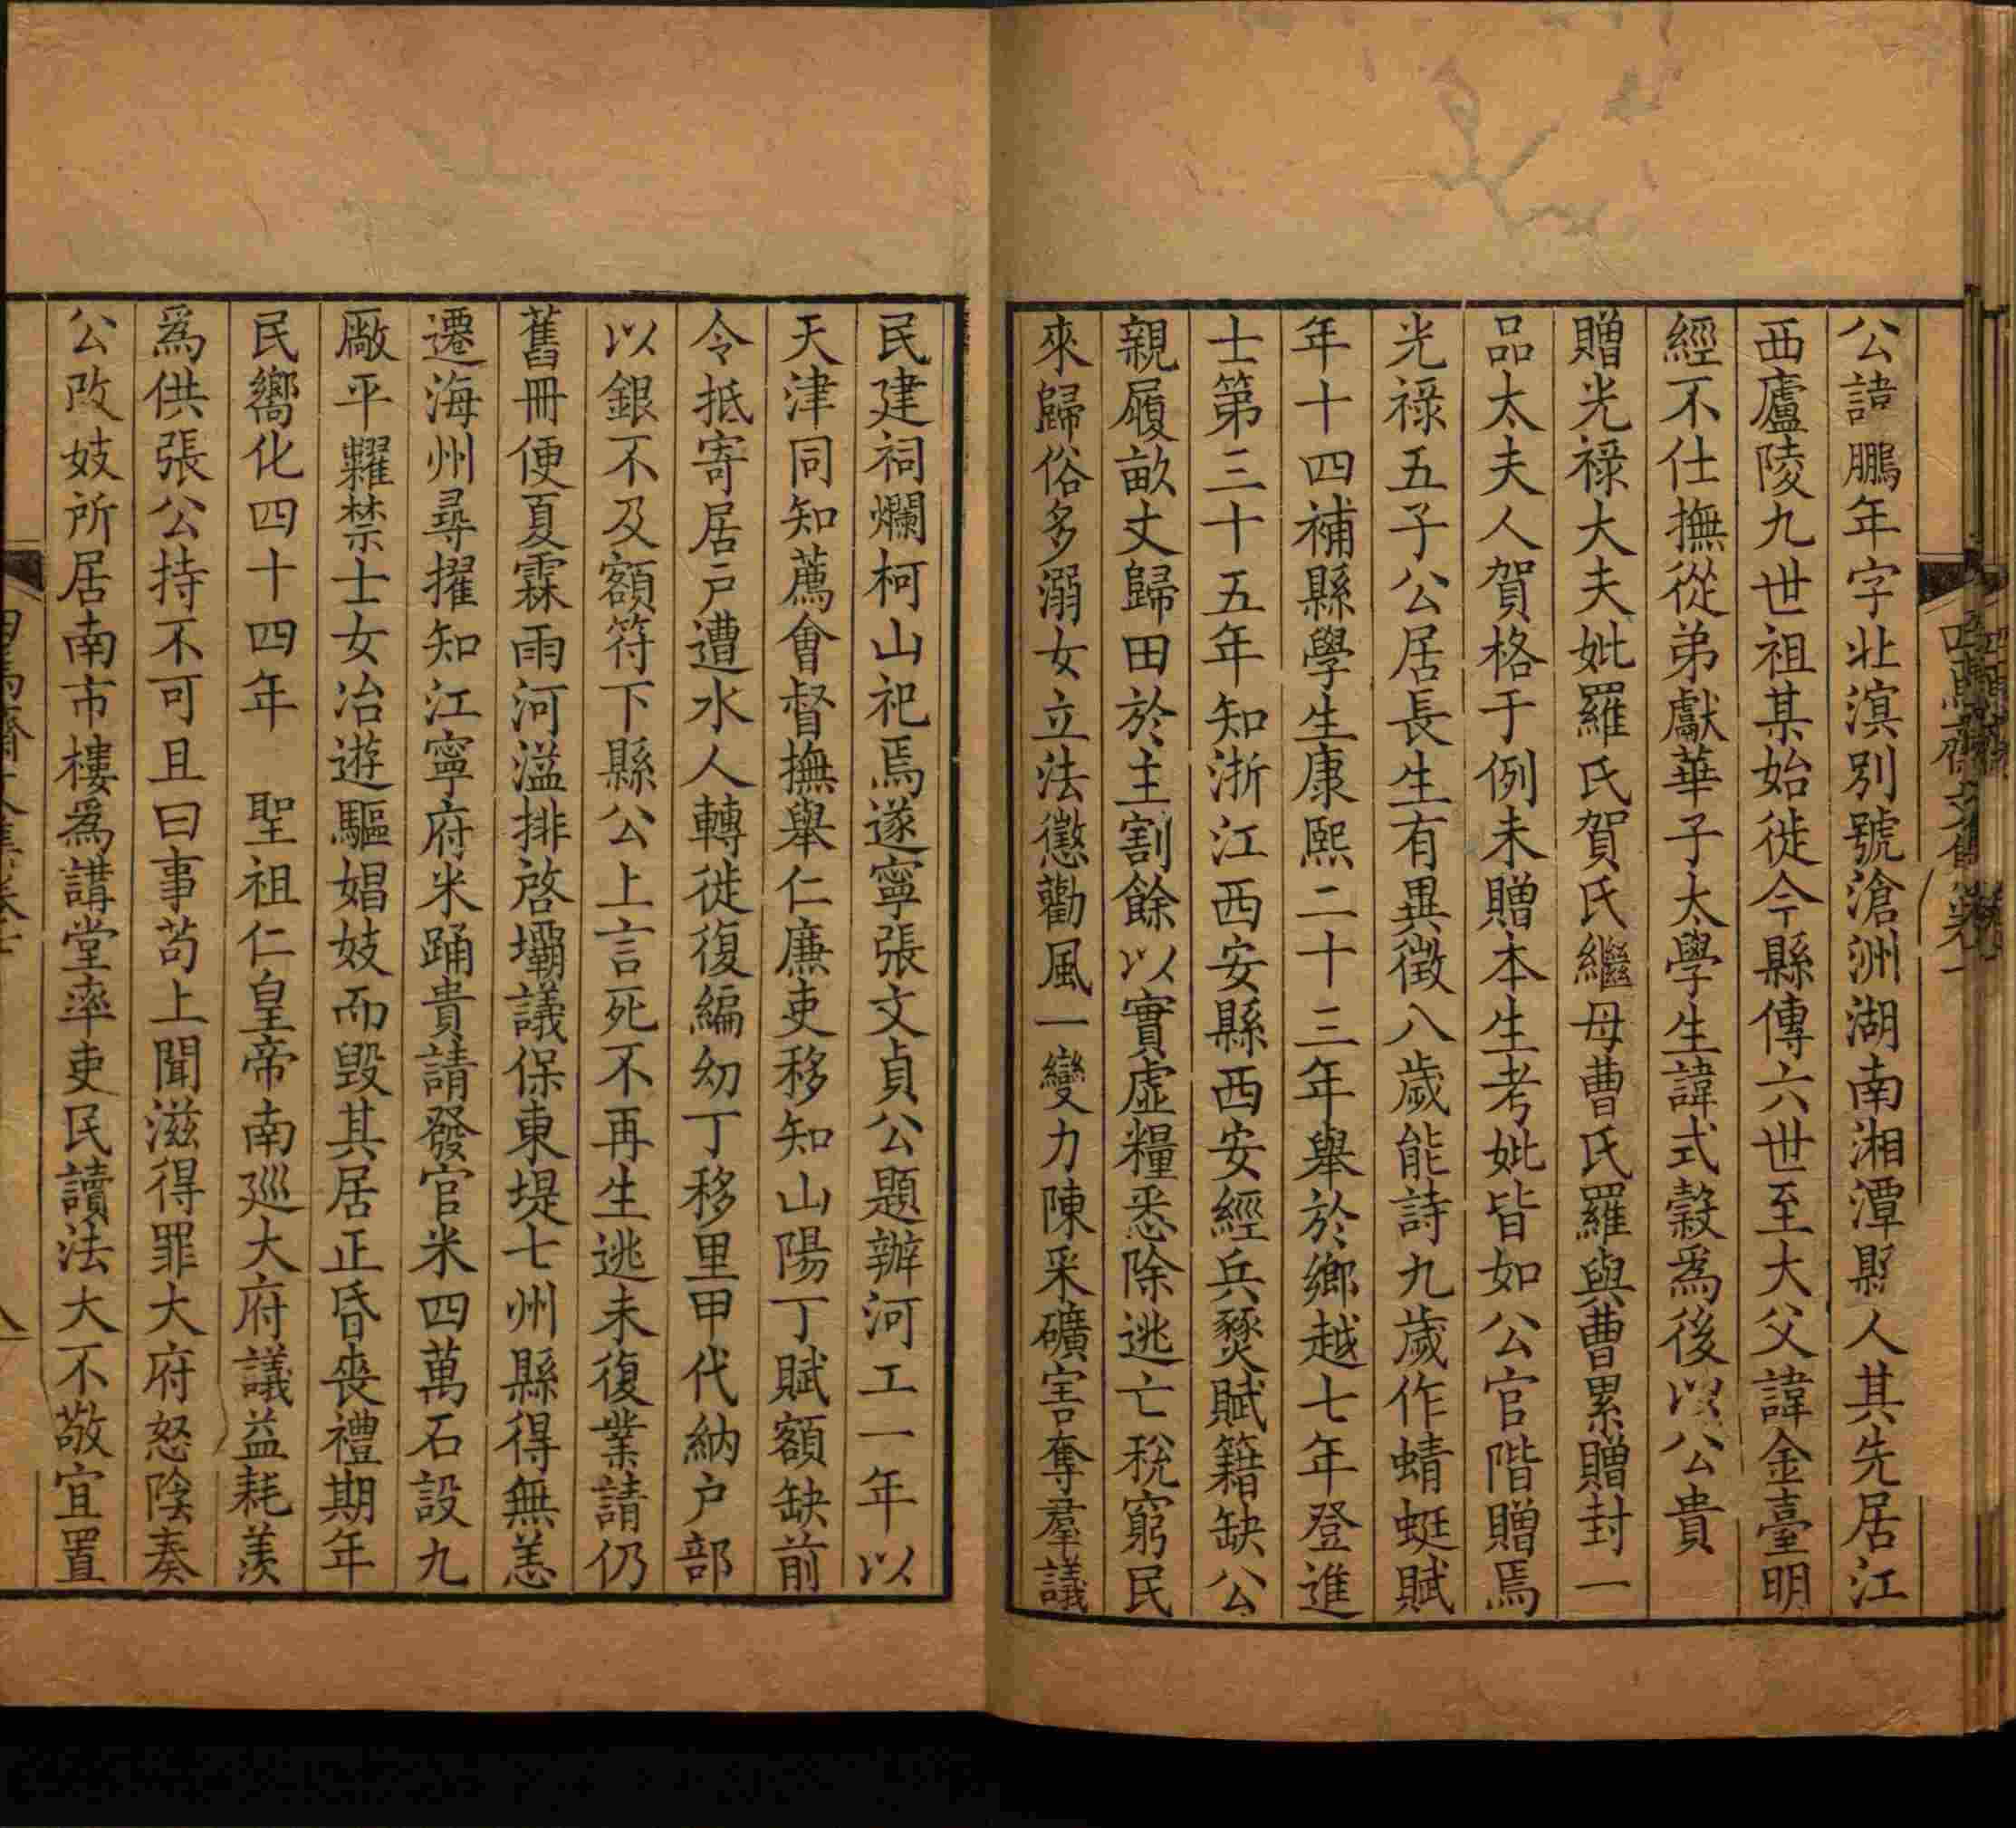 公諱鵬年字北溟別號滄洲湖南湘潭縣人其先居江
西廬陵九世祖某始徙今縣傳六世至大父諱金臺明
經不仕撫從弟獻華子太學生諱式穀爲後以公貴
贈光祿大夫妣羅氏賀氏繼母曹氏羅與曹累贈封一
品太夫人賀格于例未贈本生考妣皆如公官階贈焉
光祿五子公居長生有異徵八歲能詩九歲作蜻蜓賦
年十四補縣學生康熙二十三年舉於鄉越七年登進
士第三十五年知浙江西安縣西安經兵燹賦籍缺公
親履畝丈歸田於主割餘以實虛糧悉除逃亡稅窮民
來歸俗多溺女立法懲勸風一變力陳采礦害奪羣議
民建祠爛柯山祀焉遂寧張文貞公題辦河工一年以
天津同知薦會督撫舉仁廉吏移知山陽丁賦額缺前
令抵寄居戶遭水人轉徙復編幼丁移里甲代納户部
以銀不及額符下縣公上言死不再生逃未復業請仍
舊冊便夏霖雨河溢排啓壩議保東堤七州縣得無恙
遷海州尋擢知江寧府米踊貴請發官米四萬石設九
厰平糶禁士女冶遊驅娼妓而毀其居正昏喪禮期年
民嚮化四十四年　聖祖仁皇帝南巡大府議益耗羡
爲供張公持不可且曰事苟上聞滋得罪大府怒陰奏
公改妓所居南市樓爲講堂率吏民讀法大不敬宜置